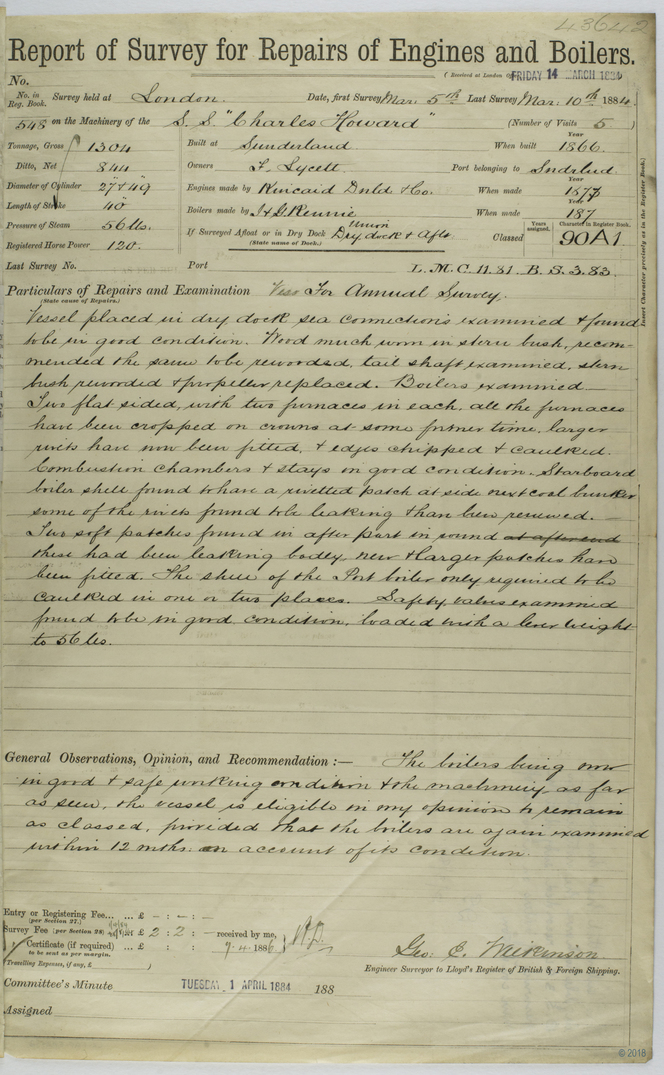 43642
Report of Survey for Repairs of Engines and Boilers.
(Received at London Office FRIDAY 14 MARCH 1884
No.
No. in Reg. Book. Survey held at London. Date, first Survey Mar: 5th Last Survey Mar: 10th 1884.
548 on the Machinery of the S.S. "Charles Howard" (Number of Visits 5)
Tonnage, Gross 1304 Built at Sunderland When built Year 1866.
Ditto, Net 844 Owners F. Lycett Port belonging to Sndrlnd
Diameter of Cylinder 27" & 49" Engines made by Kincaid Dnld & Co. When made Year 1877
Length of Stroke 40" Boilers made by J & G Rennie When made Year 187
Pressure of Steam 56 lbs. If Surveyed Afloat or in Dry Dock Union Dry dock & Aflt. Classed Years assigned. Character in Register Book. 90A1
(State name of Dock.)
Registered Horse Power 120.
Insert Character precisely as in the Register Book.
Last Survey No. Port L.M.C. 11.81. B.S. 3.83.
Particulars of Repairs and Examination For Annual Survey.
(State cause of Repairs.)
Vessel placed in dry dock sea connections examined & found
to be in good condition. Wood much worn in stern bush, recom-
mended the same to be rewooded, tail shaft examined, stern
bush rewooded & propeller replaced. Boilers examined
Two flat sided, with two furnaces in each, all the furnaces
have been cropped on crowns at some former time, larger
rivets have now been fitted, & edges chipped & caulked.
Combustion chambers & stays in good condition. Starboard
boiler shell found to have a rivetted patch at side next coal bunker
some of the rivets found to be leaking & have been renewed.
Two soft patches found in after part in round at after end
these had been leaking badly, new & larger patches have
been fitted. The shell of the Port boiler only required to be
caulked in one or two places. Safety valves examined
found to be in good condition, loaded with a lever weight
to 56 lbs.
General Observations, Opinion, and Recommendation :— The boilers being now
in good & safe working condition & the machinery as far
as seen, the vessel is eligible in my opinion to remain
as classed, provided that the boilers are again examined
within 12 mths. on account of its condition.
Entry or Registering Fee... ... £ — : — : —
(per Section 27.)
Survey Fee (per Section 28) £ 2 : 2 : — received by me,
Certificate (if required) ... £ : : 9.4.1886
to be sent as per margin.
(Travelling Expenses, if any, £ )
Geo. E. Wilkinson
Engineer Surveyor to Lloyd's Register of British & Foreign Shipping.
Committee's Minute TUESDAY 1 APRIL 1884 188
Assigned
© 2018